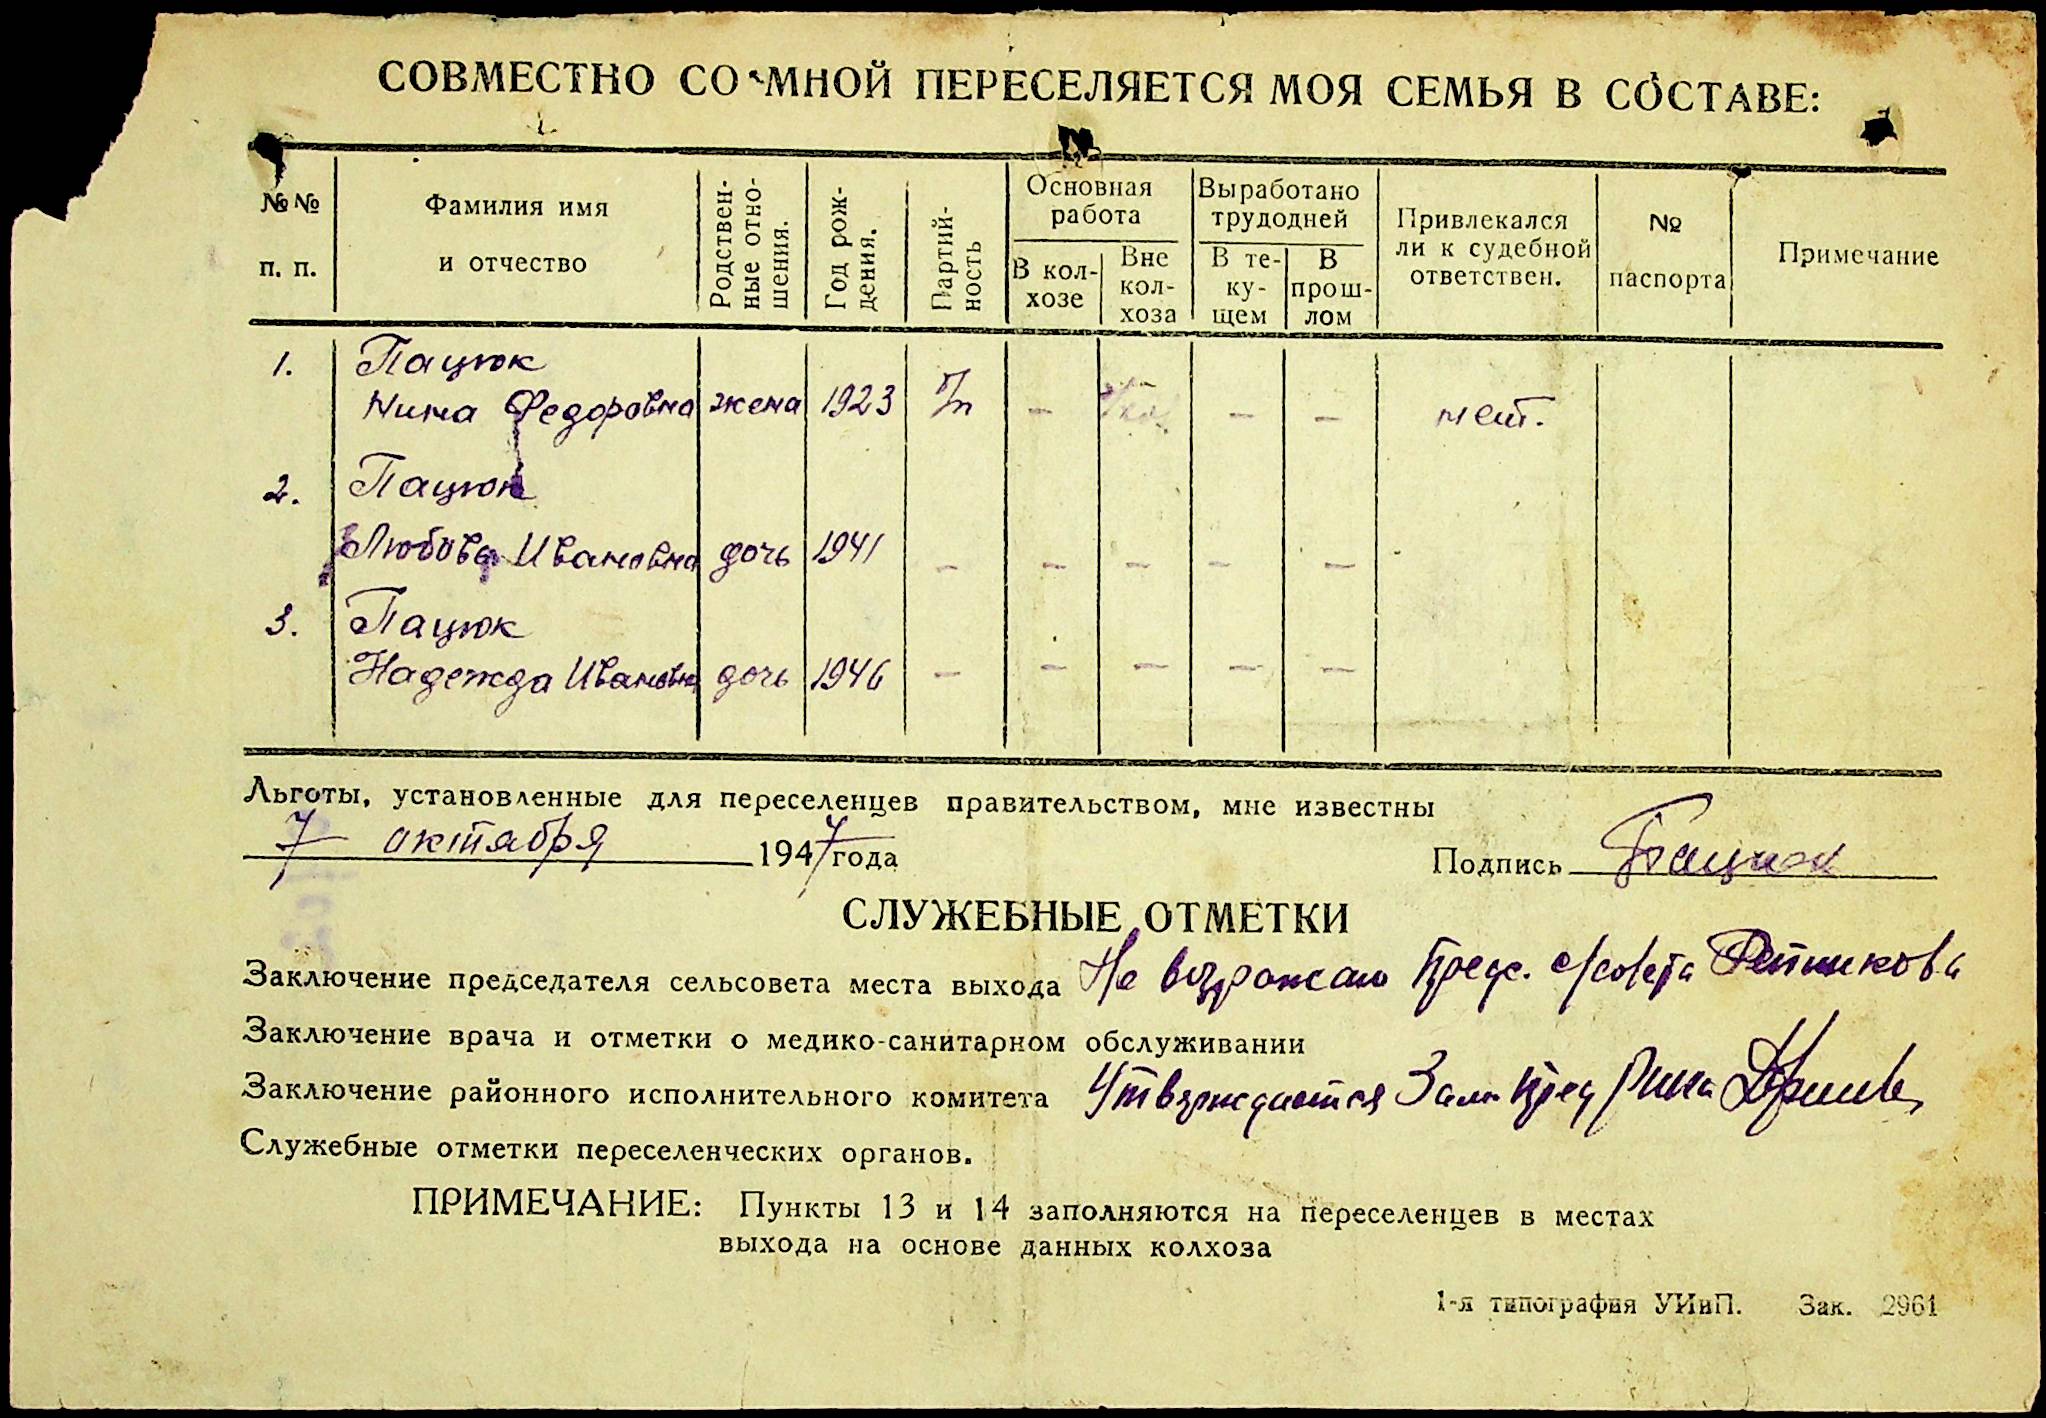 СОВМЕСТНО СО МНОЙ ПЕРЕСЕЛЯЕТСЯ МОЯ СЕМЬЯ В СОСТАВЕ:
№№ п. п.
Фамилия имя и отчество
Родствен-ные отно-шения.
Год рож-дения.
Партий-ность
Основная работа
В кол-хозе
Вне кол-хоза
Выработано трудодней
В те-ку-щем
В прош-лом
Привлекался ли к судебной ответствен.
№ паспорта
Примечание
1. Пацюк
Нина Федоровна жена 1923 б/п - - - нет.
2. Пацюк
Любовь Ивановна дочь 1941 - - - - -
3. Пацюк
Надежда Ивановна дочь 1946 - - - - -
Льготы, установленные для переселенцев правительством, мне известны
7 октября 1947 года
Подпись Пацюк
СЛУЖЕБНЫЕ ОТМЕТКИ
Заключение председателя сельсовета места выхода Не возражаю Пред. с/совета
Заключение врача и отметки о медико-санитарном обслуживании
Заключение районного исполнительного комитета Утверждается Зам. пред
Служебные отметки переселенческих органов.
ПРИМЕЧАНИЕ: Пункты 13 и 14 заполняются на переселенцев в местах
выхода на основе данных колхоза
1-я типография УИиП. Зак. 2961